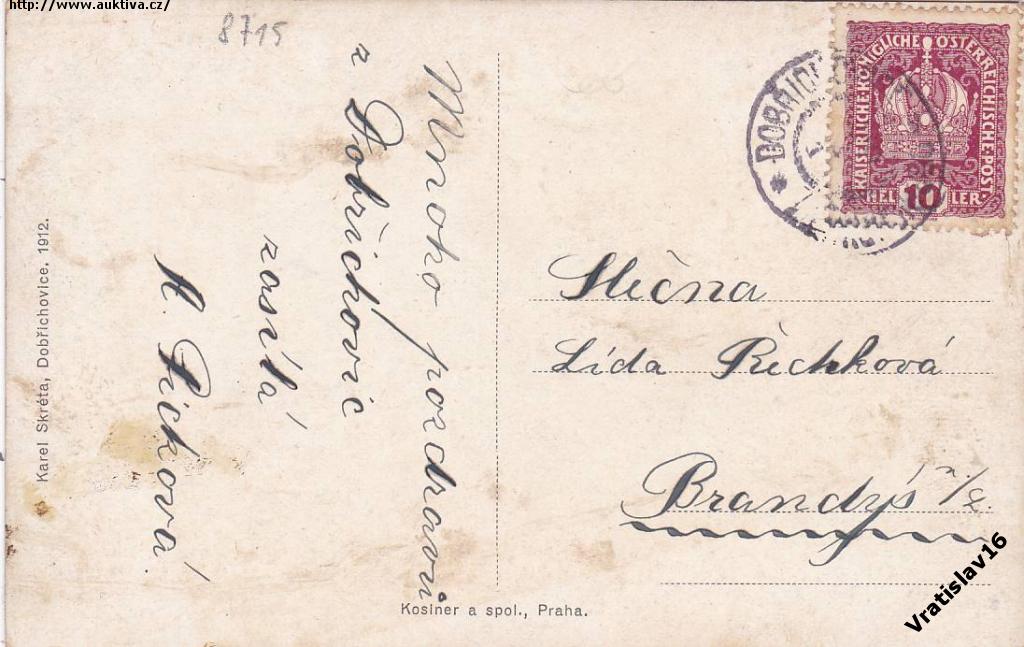 http://www.auktiva.cz/
8715
Mnoho pozdravů
z Dobřichovic
zasílá
A. Picková.
Karel Skréta, Dobřichovice, 1912.
Koslner a spol., Praha.
KAISERLICHE KÖNIGLICHE ÖSTERREICHISCHE POST.
HELLER
10
* DOBŘICHO
Slečna
Lída Řečhková
Brandýs n./L.
Vratislav16